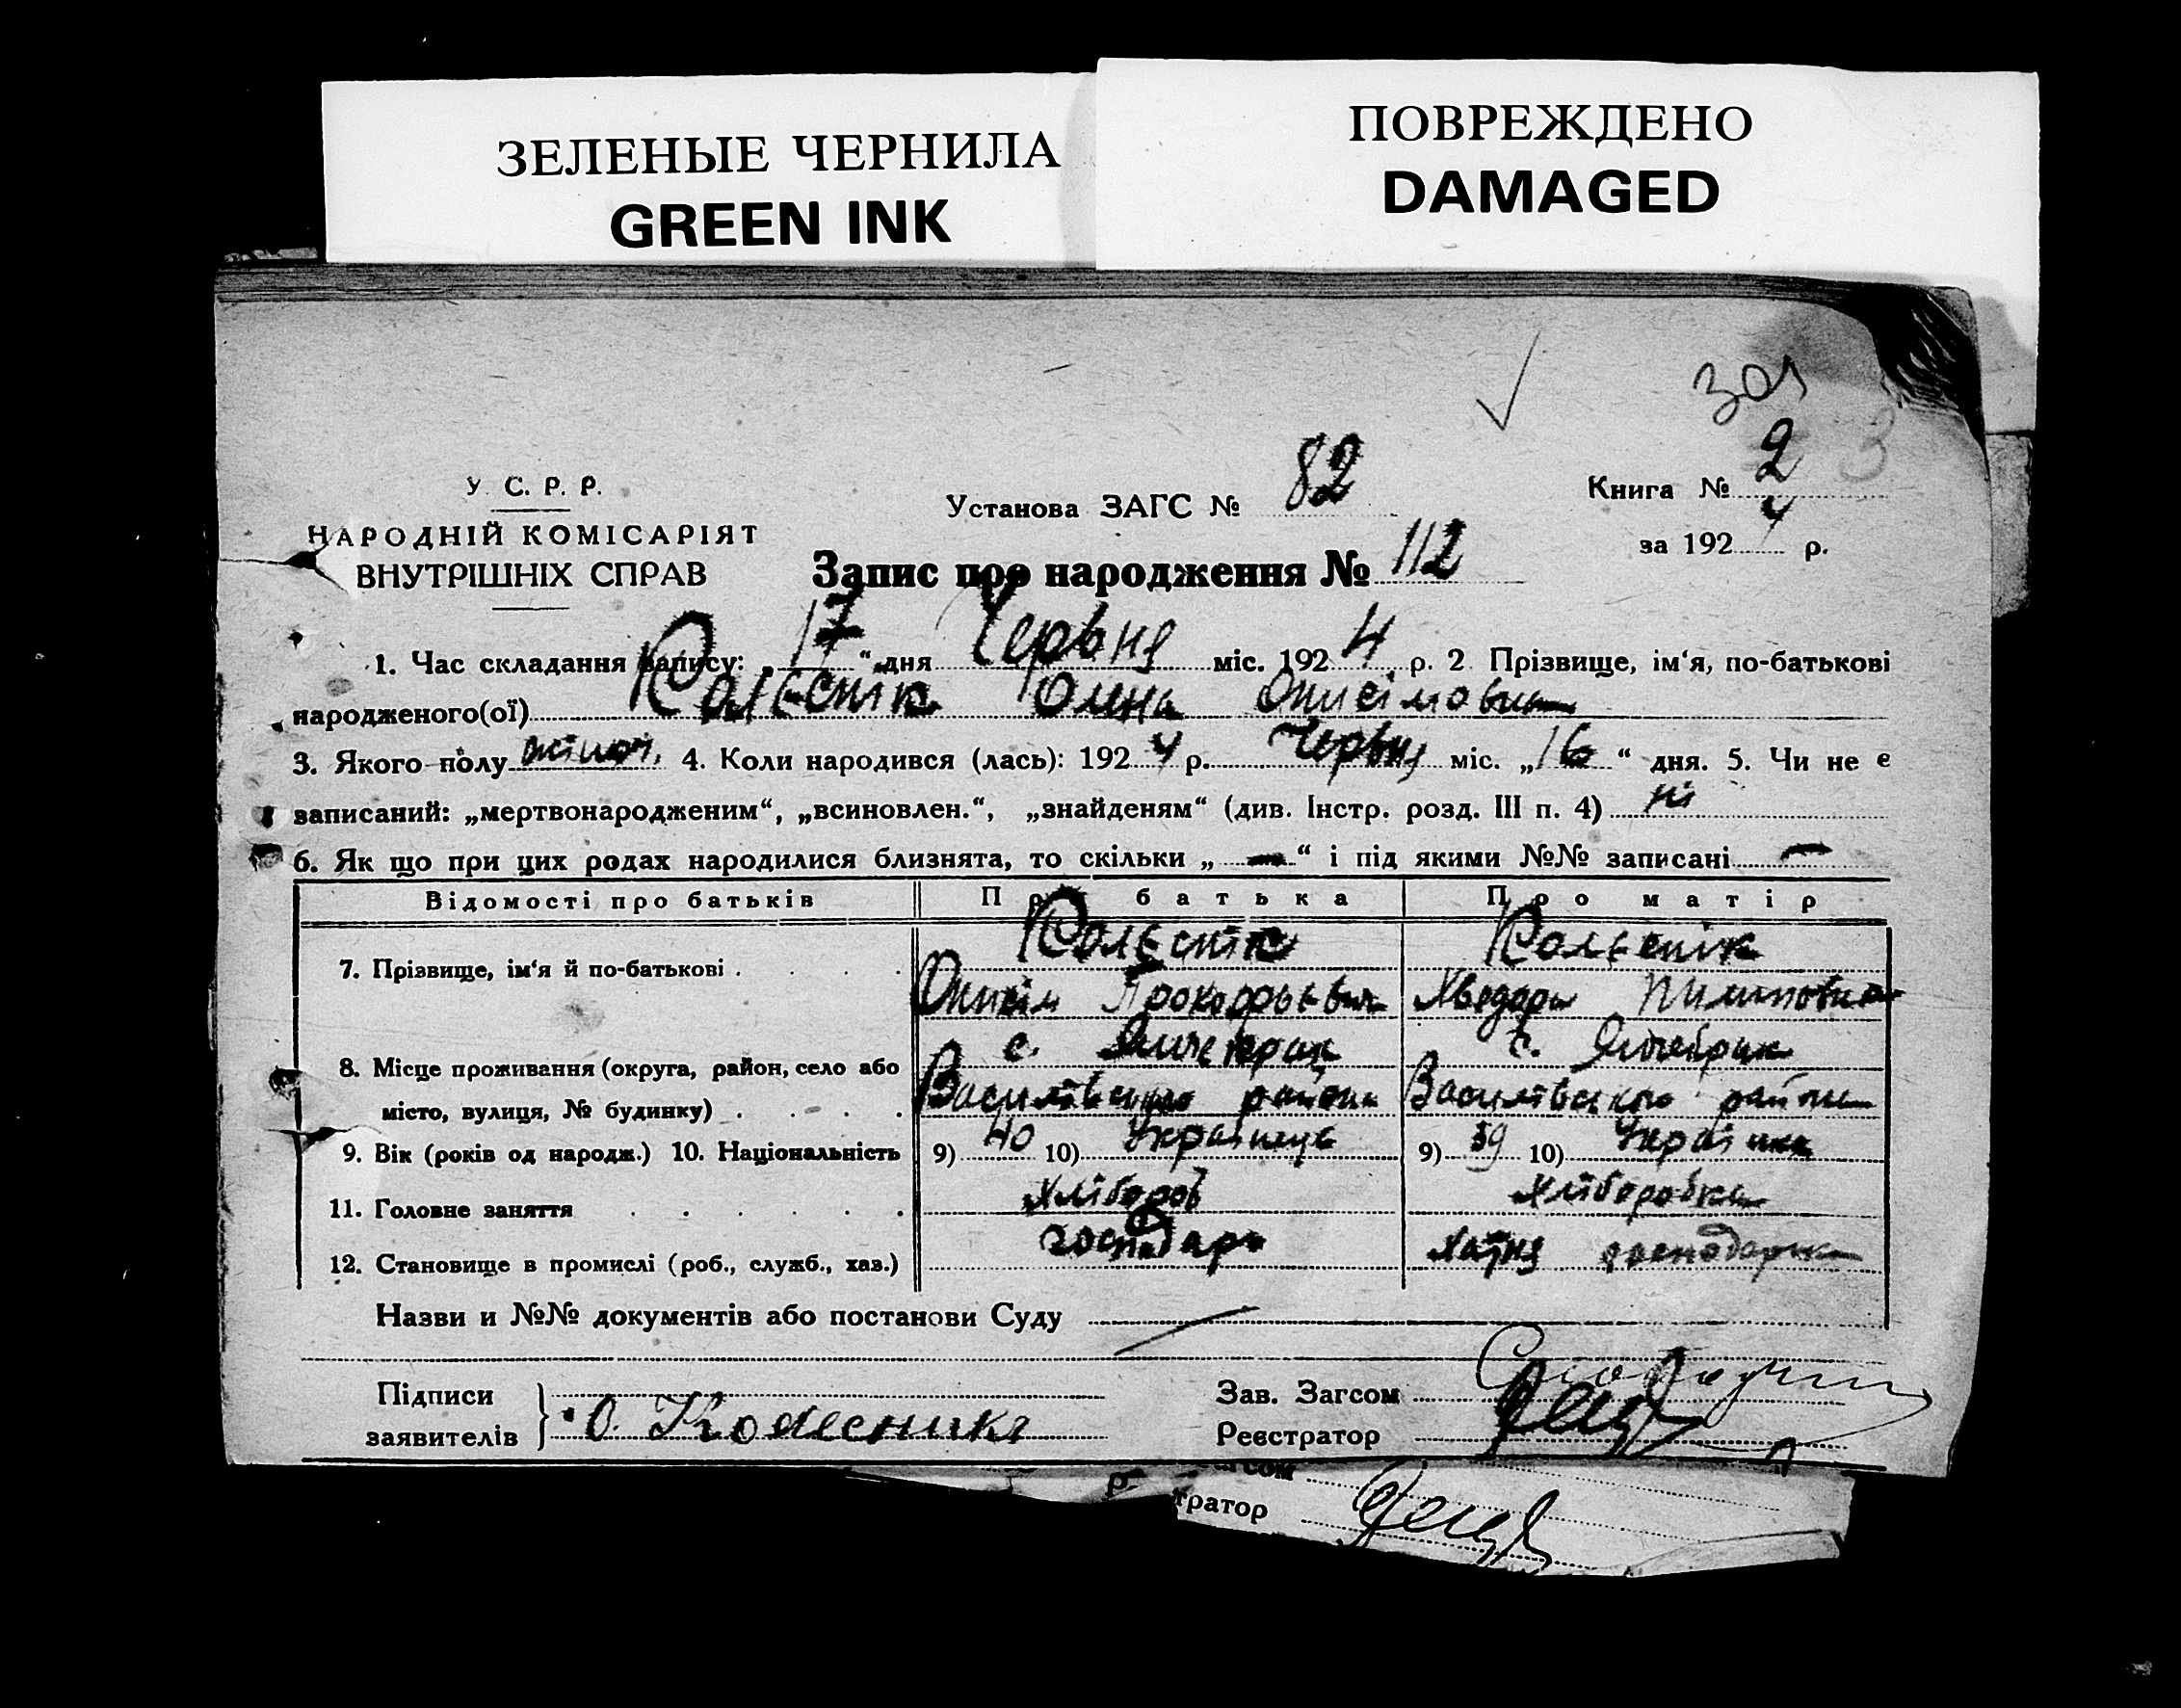 ЗЕЛЕНЫЕ ЧЕРНИЛА
GREEN INK
ПОВРЕЖДЕНО
DAMAGED
У. С. Р. Р.
НАРОДНІЙ КОМІСАРІЯТ
ВНУТРІШНІХ СПРАВ
Установа ЗАГС № 82
Книга № 2
за 1924 р.
Запис про народження № 112
1. Час складання запису: „17“ дня Червня міс. 1924 р. 2 Прізвище, ім‘я, по-батькові
народженого(ої) Колєснік Олена Онисімовна
3. Якого полу жіноч. 4. Коли народився (лась): 1924 р. Червня міс. „16“ дня. 5. Чи не є
записаний: „мертвонародженим“, „всиновлен.“, „знайденям“ (див. Інстр. розд. III п. 4) ні
6. Як що при цих родах народилися близнята, то скільки „ — “ і під якими №№ записані —
Відомості про батьків Про батька Про матір
7. Прізвище, ім‘я й по-батькові . Колєснік Колєснік
Онисім Прокофьєвич Хведора Пилиповна
8. Місце проживання (округа, район, село або с. Янчекрак с.
місто, вулиця, № будинку) . Василівського района Василівського района
9. Вік (років од народж.) 10. Національність 9) 40 10) Українець 9) 39 10) Українка
11. Головне заняття Хлібороб Хліборобка
12. Становище в промислі (роб., служб., хаз.) господарь хатня господарка
Назви и №№ документів або постанови Суду
Підписи
заявителів
О. Колесника
Зав. Загсом
Реєстратор
р.
гсом
тратор